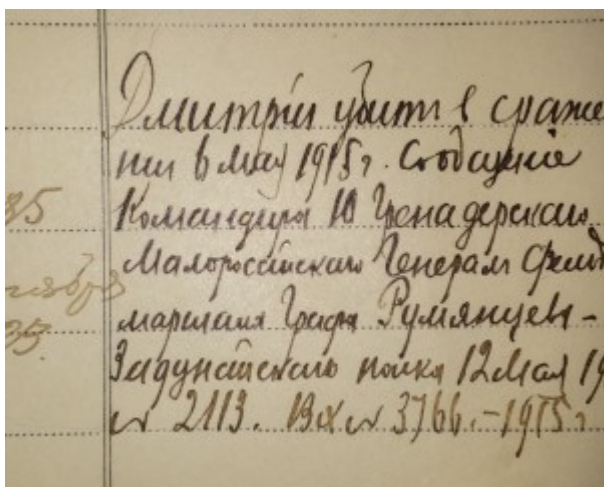 Дмитрій убитъ в сраже
нии в маѣ 1915 г. Сообщеніе
35 Командира 10 Гренадерскаго
Малороссійскаго Генералъ Фельд
35. маршала Графа Румянцева-
Задунайскаго полка 12 Мая 19
№ 2113. Вх № 3766.-1915 г